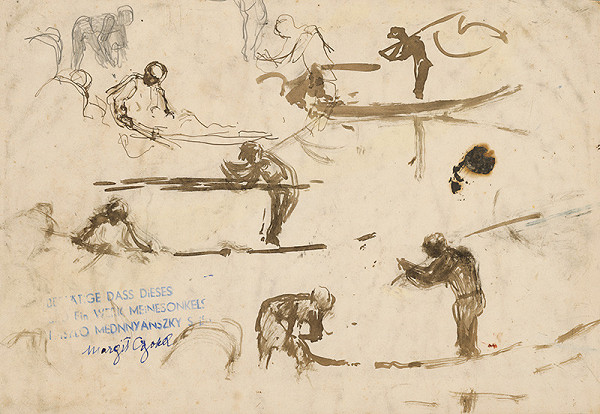 TIGE DASS DIESES
EIN WERK MEINES ONKELS
MEDNNYANSZKY
Margit Czobel